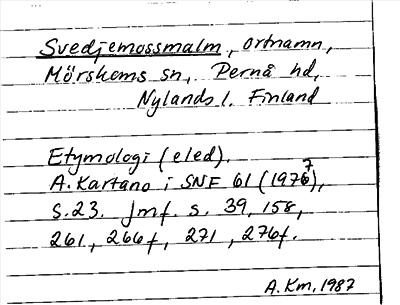 Svedjemossmalm, ortnamn,
Mörskoms sn, Pernå hd,
Nylands l. Finland
Etymologi (eled).
A. Kartano i SNF 61 (1977),
s. 23. Jmf. s. 39, 158,
261, 266f, 271, 276f.
A. Km, 1987